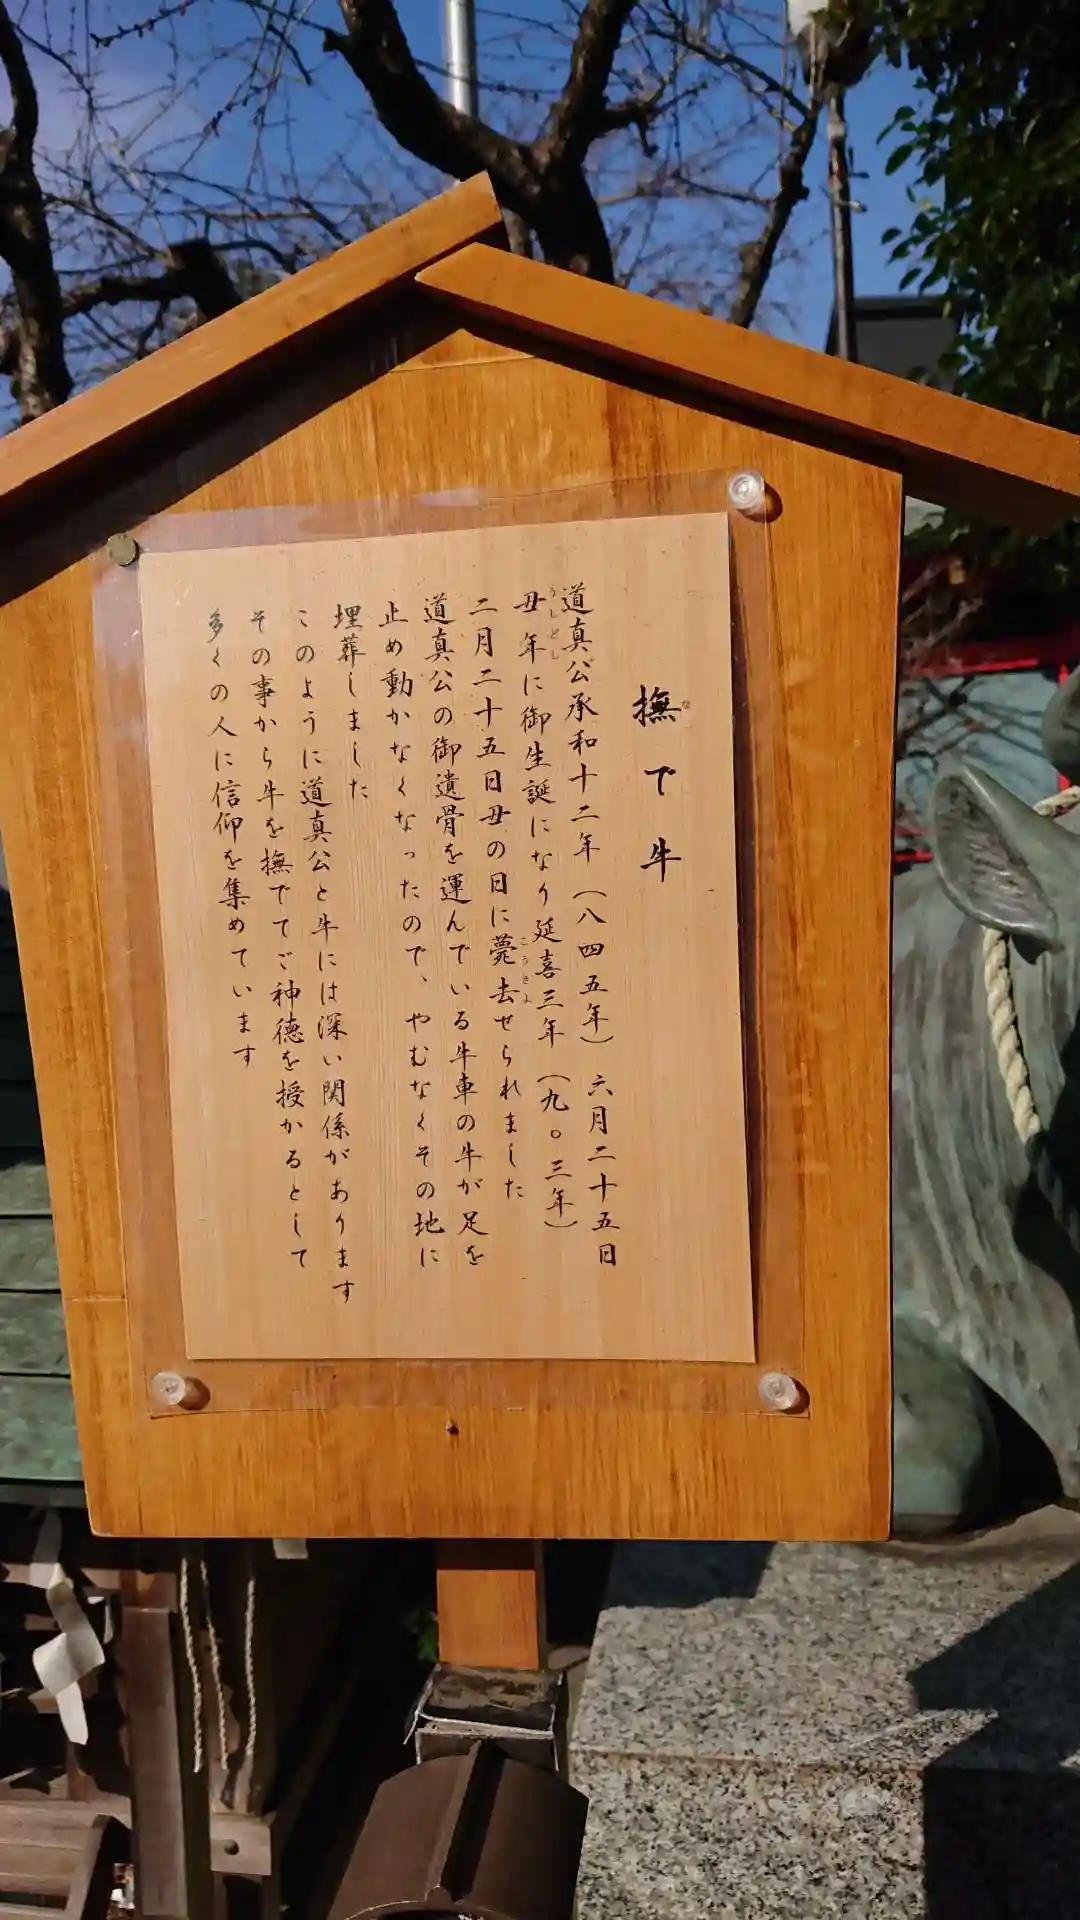 撫で牛
な
道真公承和十二年(八四五年)六月二十五日
丑年に御生誕になり延喜三年(九〇三年)
うしどし
二月二十五日丑の日に薨去せられました
こうきよ
道真公の御遺骨を運んでいる牛車の牛が足を
止め動かなくなったので、やむなくその地に
埋葬しました
このように道真公と牛には深い関係があります
その事から牛を撫でてご神徳を授かるとして
多くの人に信仰を集めています